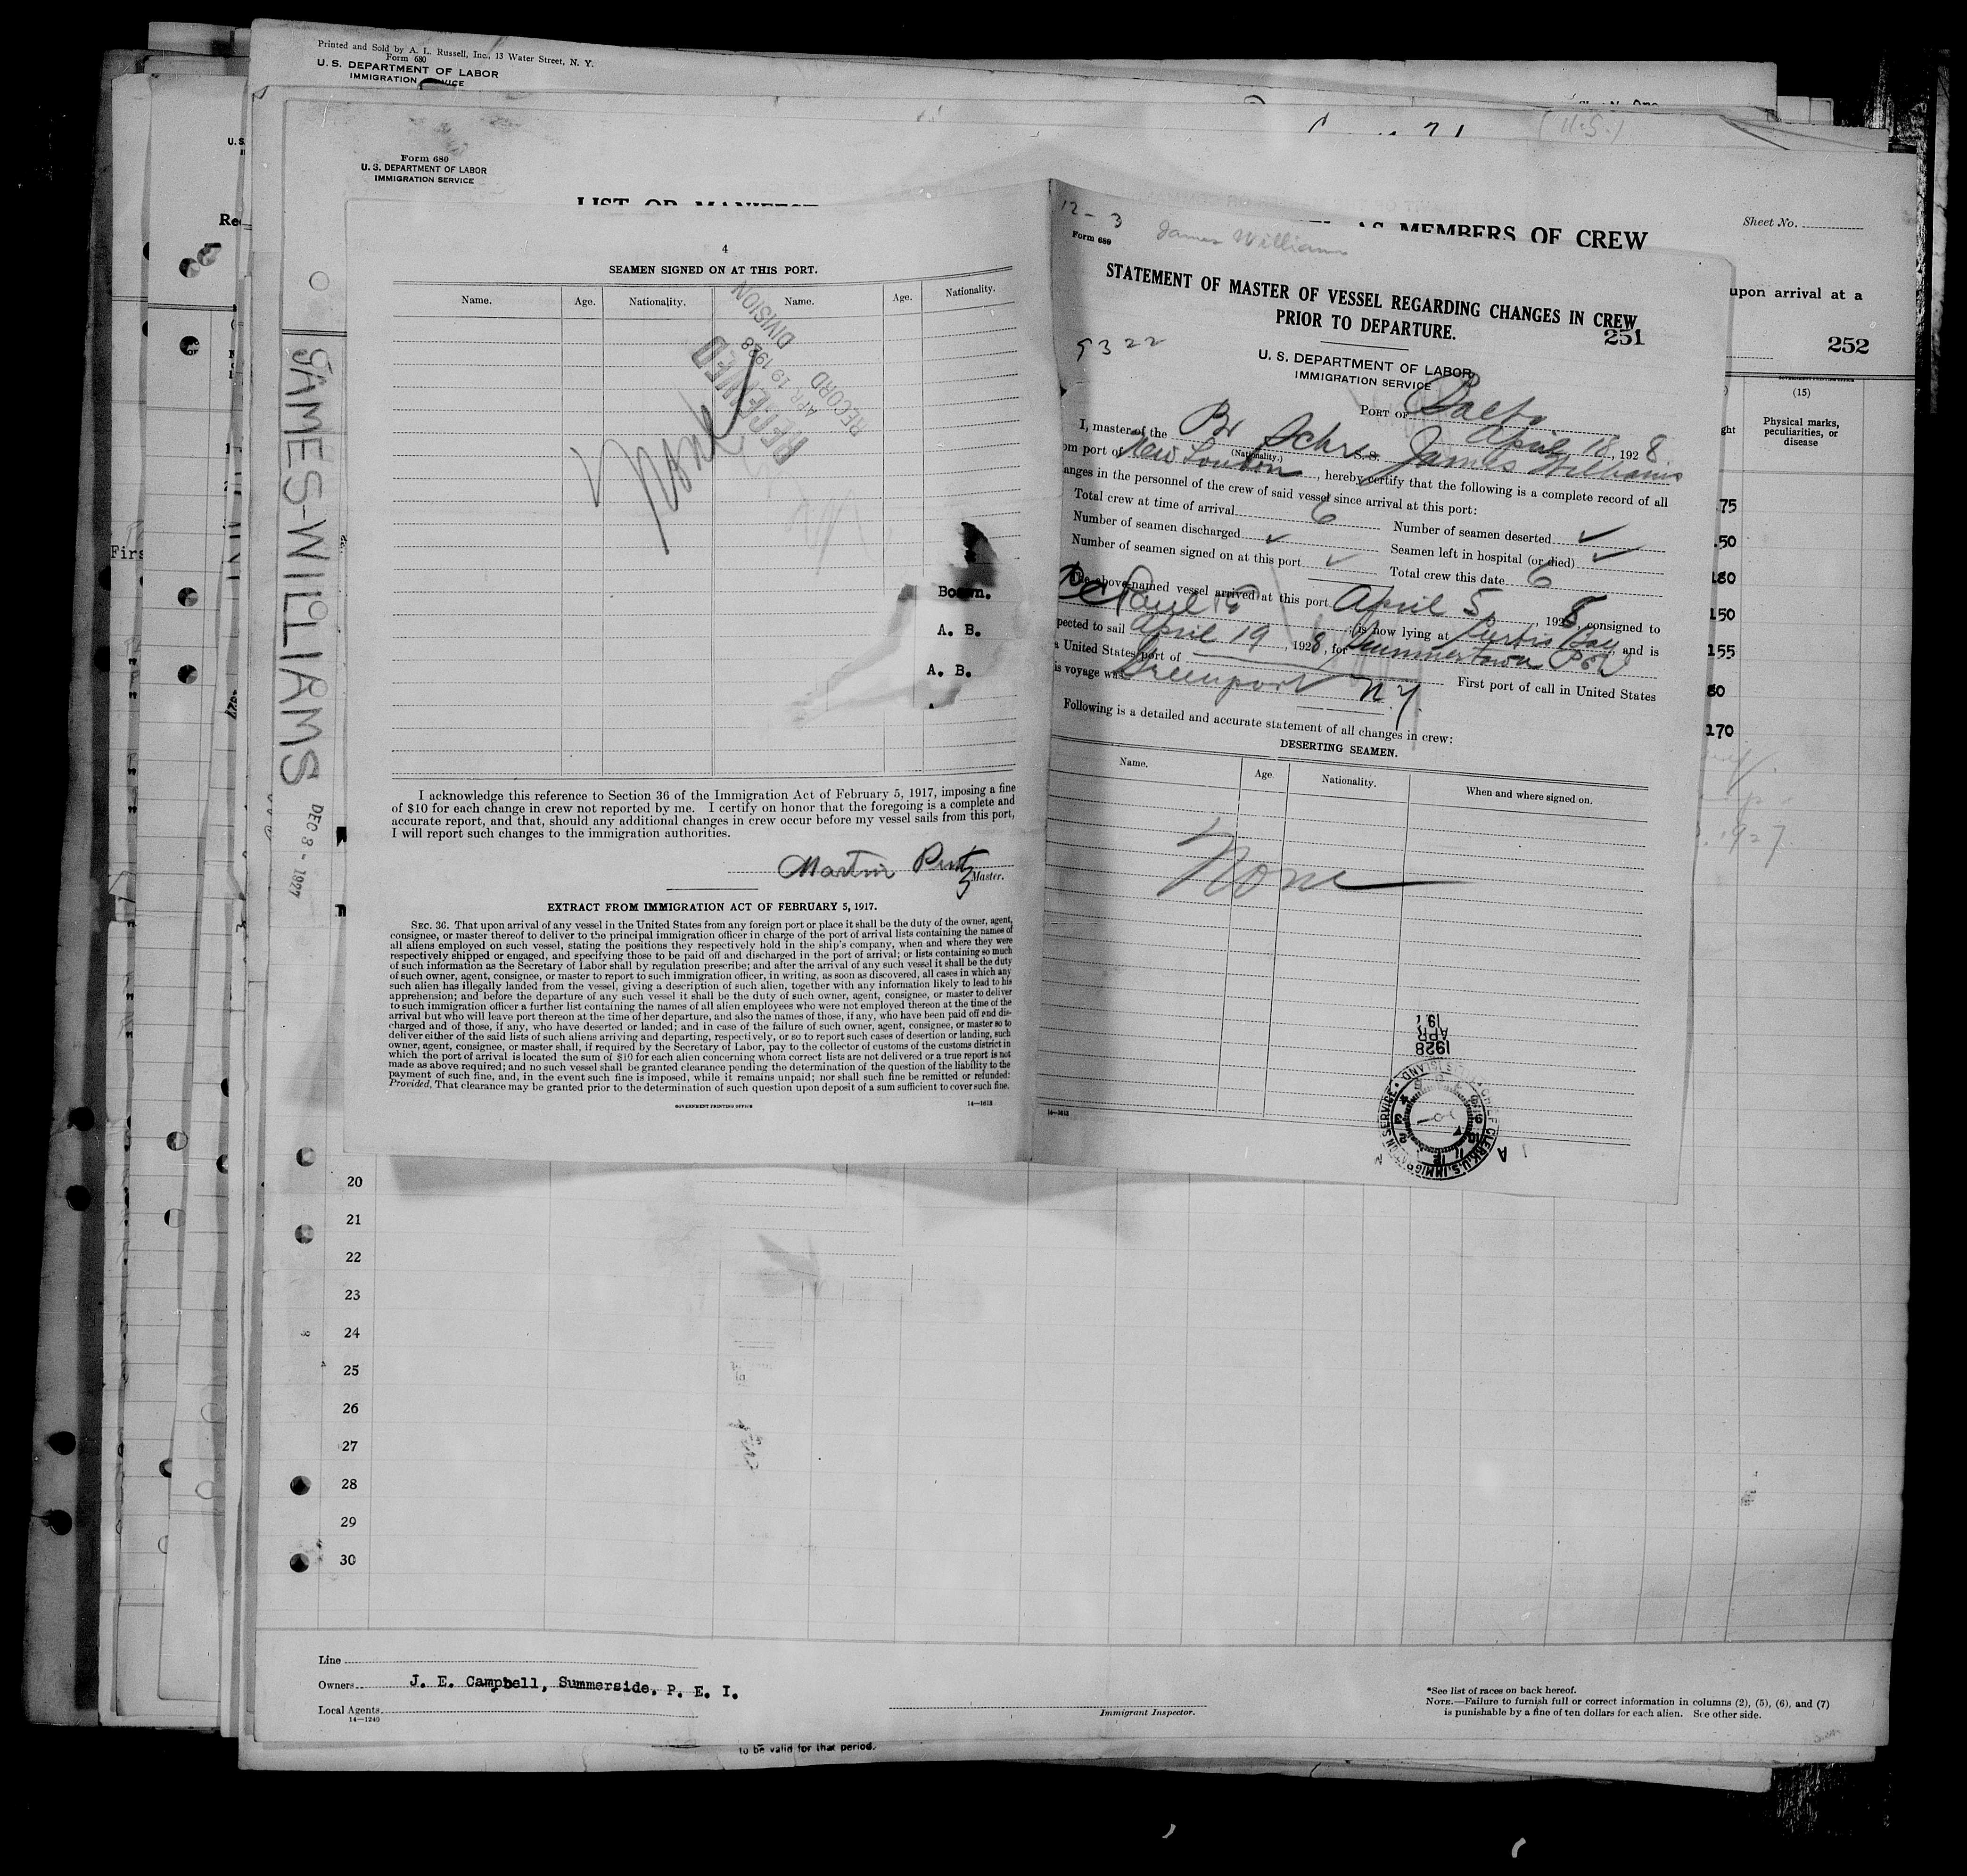 Printed and Sold by A. L. Russell, Inc., 13 Water Street, N. Y.
Form 680
U. S. DEPARTMENT OF LABOR
IMMIGRATION SERVICE
(U.S.)
Form 680
U. S. DEPARTMENT OF LABOR
IMMIGRATION SERVICE
LIST OR MANIFEST
AS MEMBERS OF CREW
Sheet No.
upon arrival at a
252
(15)
Physical marks, peculiarities, or disease
JAMES-WILLIAMS
DEC 3 - 1927
4
SEAMEN SIGNED ON AT THIS PORT.
Name. Age. Nationality. Name. Age. Nationality.
RECEIVED
APR 19 1928
RECORD
DIVISION
None
Bosun.
A. B.
A. B.
I acknowledge this reference to Section 36 of the Immigration Act of February 5, 1917, imposing a fine
of $10 for each change in crew not reported by me. I certify on honor that the foregoing is a complete and
accurate report, and that, should any additional changes in crew occur before my vessel sails from this port,
I will report such changes to the immigration authorities.
Martin
Master.
EXTRACT FROM IMMIGRATION ACT OF FEBRUARY 5, 1917.
SEC. 36. That upon arrival of any vessel in the United States from any foreign port or place it shall be the duty of the owner, agent,
consignee, or master thereof to deliver to the principal immigration officer in charge of the port of arrival lists containing the names of
all aliens employed on such vessel, stating the positions they respectively hold in the ship's company, when and where they were
respectively shipped or engaged, and specifying those to be paid off and discharged in the port of arrival; or lists containing so much
of such information as the Secretary of Labor shall by regulation prescribe; and after the arrival of any such vessel it shall be the duty
of such owner, agent, consignee, or master to report to such immigration officer, in writing, as soon as discovered, all cases in which any
such alien has illegally landed from the vessel, giving a description of such alien, together with any information likely to lead to his
apprehension; and before the departure of any such vessel it shall be the duty of such owner, agent, consignee, or master to deliver
to such immigration officer a further list containing the names of all alien employees who were not employed thereon at the time of the
arrival but who will leave port thereon at the time of her departure, and also the names of those, if any, who have been paid off and dis-
charged and of those, if any, who have deserted or landed; and in case of the failure of such owner, agent, consignee, or master so to
deliver either of the said lists of such aliens arriving and departing, respectively, or so to report such cases of desertion or landing, such
owner, agent, consignee, or master shall, if required by the Secretary of Labor, pay to the collector of customs of the customs district in
which the port of arrival is located the sum of $10 for each alien concerning whom correct lists are not delivered or a true report is not
made as above required; and no such vessel shall be granted clearance pending the determination of the question of the liability to the
payment of such fine, and, in the event such fine is imposed, while it remains unpaid; nor shall such fine be remitted or refunded:
Provided, That clearance may be granted prior to the determination of such question upon deposit of a sum sufficient to cover such fine.
GOVERNMENT PRINTING OFFICE
14—1613
12-3
James Williams
Form 689
STATEMENT OF MASTER OF VESSEL REGARDING CHANGES IN CREW
PRIOR TO DEPARTURE.
251
9322
U. S. DEPARTMENT OF LABOR
IMMIGRATION SERVICE
PORT OF Balto
April 18, 1928
I, master of the Br Schr. S.S. James Williams
(Nationality.)
om port of New London, hereby certify that the following is a complete record of all
anges in the personnel of the crew of said vessel since arrival at this port:
Total crew at time of arrival 6 Number of seamen deserted
Number of seamen discharged Seamen left in hospital (or died)
Number of seamen signed on at this port Total crew this date 6
The above-named vessel arrived at this port April 5, 1928, consigned to
is now lying at Curtis Bay, and is
pected to sail April 19, 1928, for
a United States port of First port of call in United States
is voyage was Greenport N.Y.
Following is a detailed and accurate statement of all changes in crew:
DESERTING SEAMEN.
Name. Age. Nationality. When and where signed on.
None
APR 19
1928
CHIEF CLERK, U.S. IMMIGRATION SERVICE
14—1613
75
50
180
150
155
80
170
1927
20
21
22
23
24
25
26
27
28
29
30
Line
Owners J. E. Campbell, Summerside, P. E. I.
Local Agents
14—1240
Immigrant Inspector.
*See list of races on back hereof.
NOTE.—Failure to furnish full or correct information in columns (2), (5), (6), and (7)
is punishable by a fine of ten dollars for each alien. See other side.
to be valid for that period.